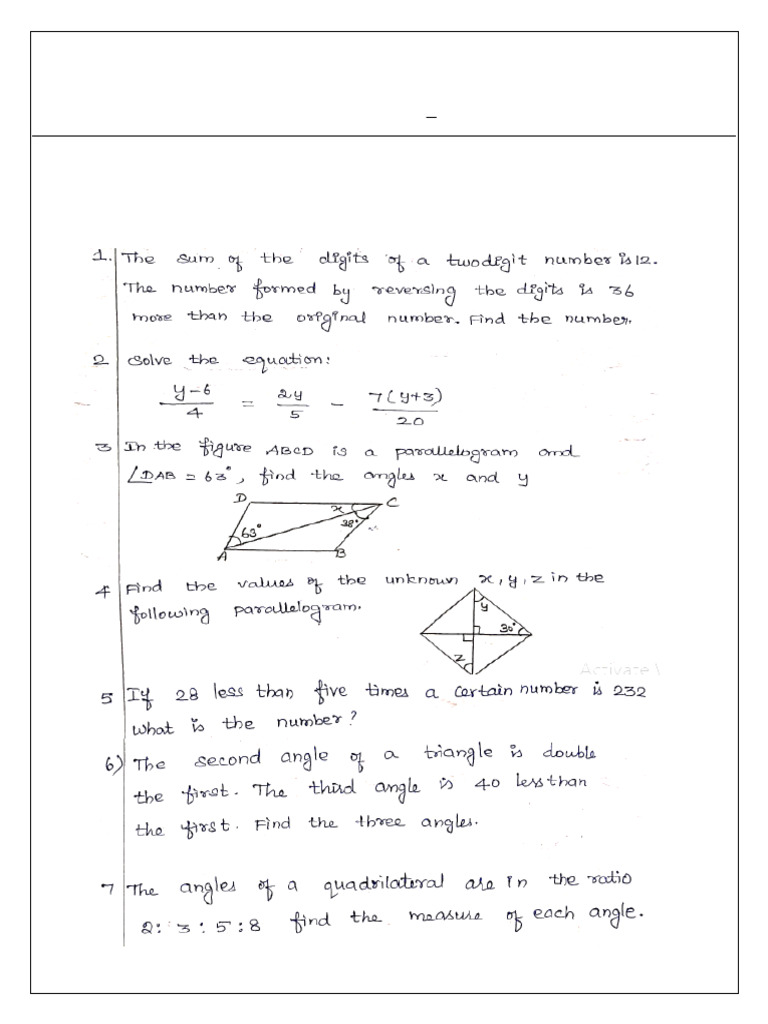 –
1. The sum of the digits of a two digit number is 12.
The number formed by reversing the digits is 36
more than the original number. Find the number.
2 Solve the equation:
y-6/4 = 2y/5 - 7(y+3)/20
3 In the figure ABCD is a parallelogram and
∠DAB = 63°, find the angles x and y
D C
x
38°
63°
A B
4 Find the values of the unknown x, y, z in the
following parallelogram.
y
30°
z
Activate
5 If 28 less than five times a certain number is 232
what is the number?
6) The second angle of a triangle is double
the first. The third angle is 40 less than
the first. Find the three angles.
7 The angles of a quadrilateral are in the ratio
2:3:5:8 find the measure of each angle.